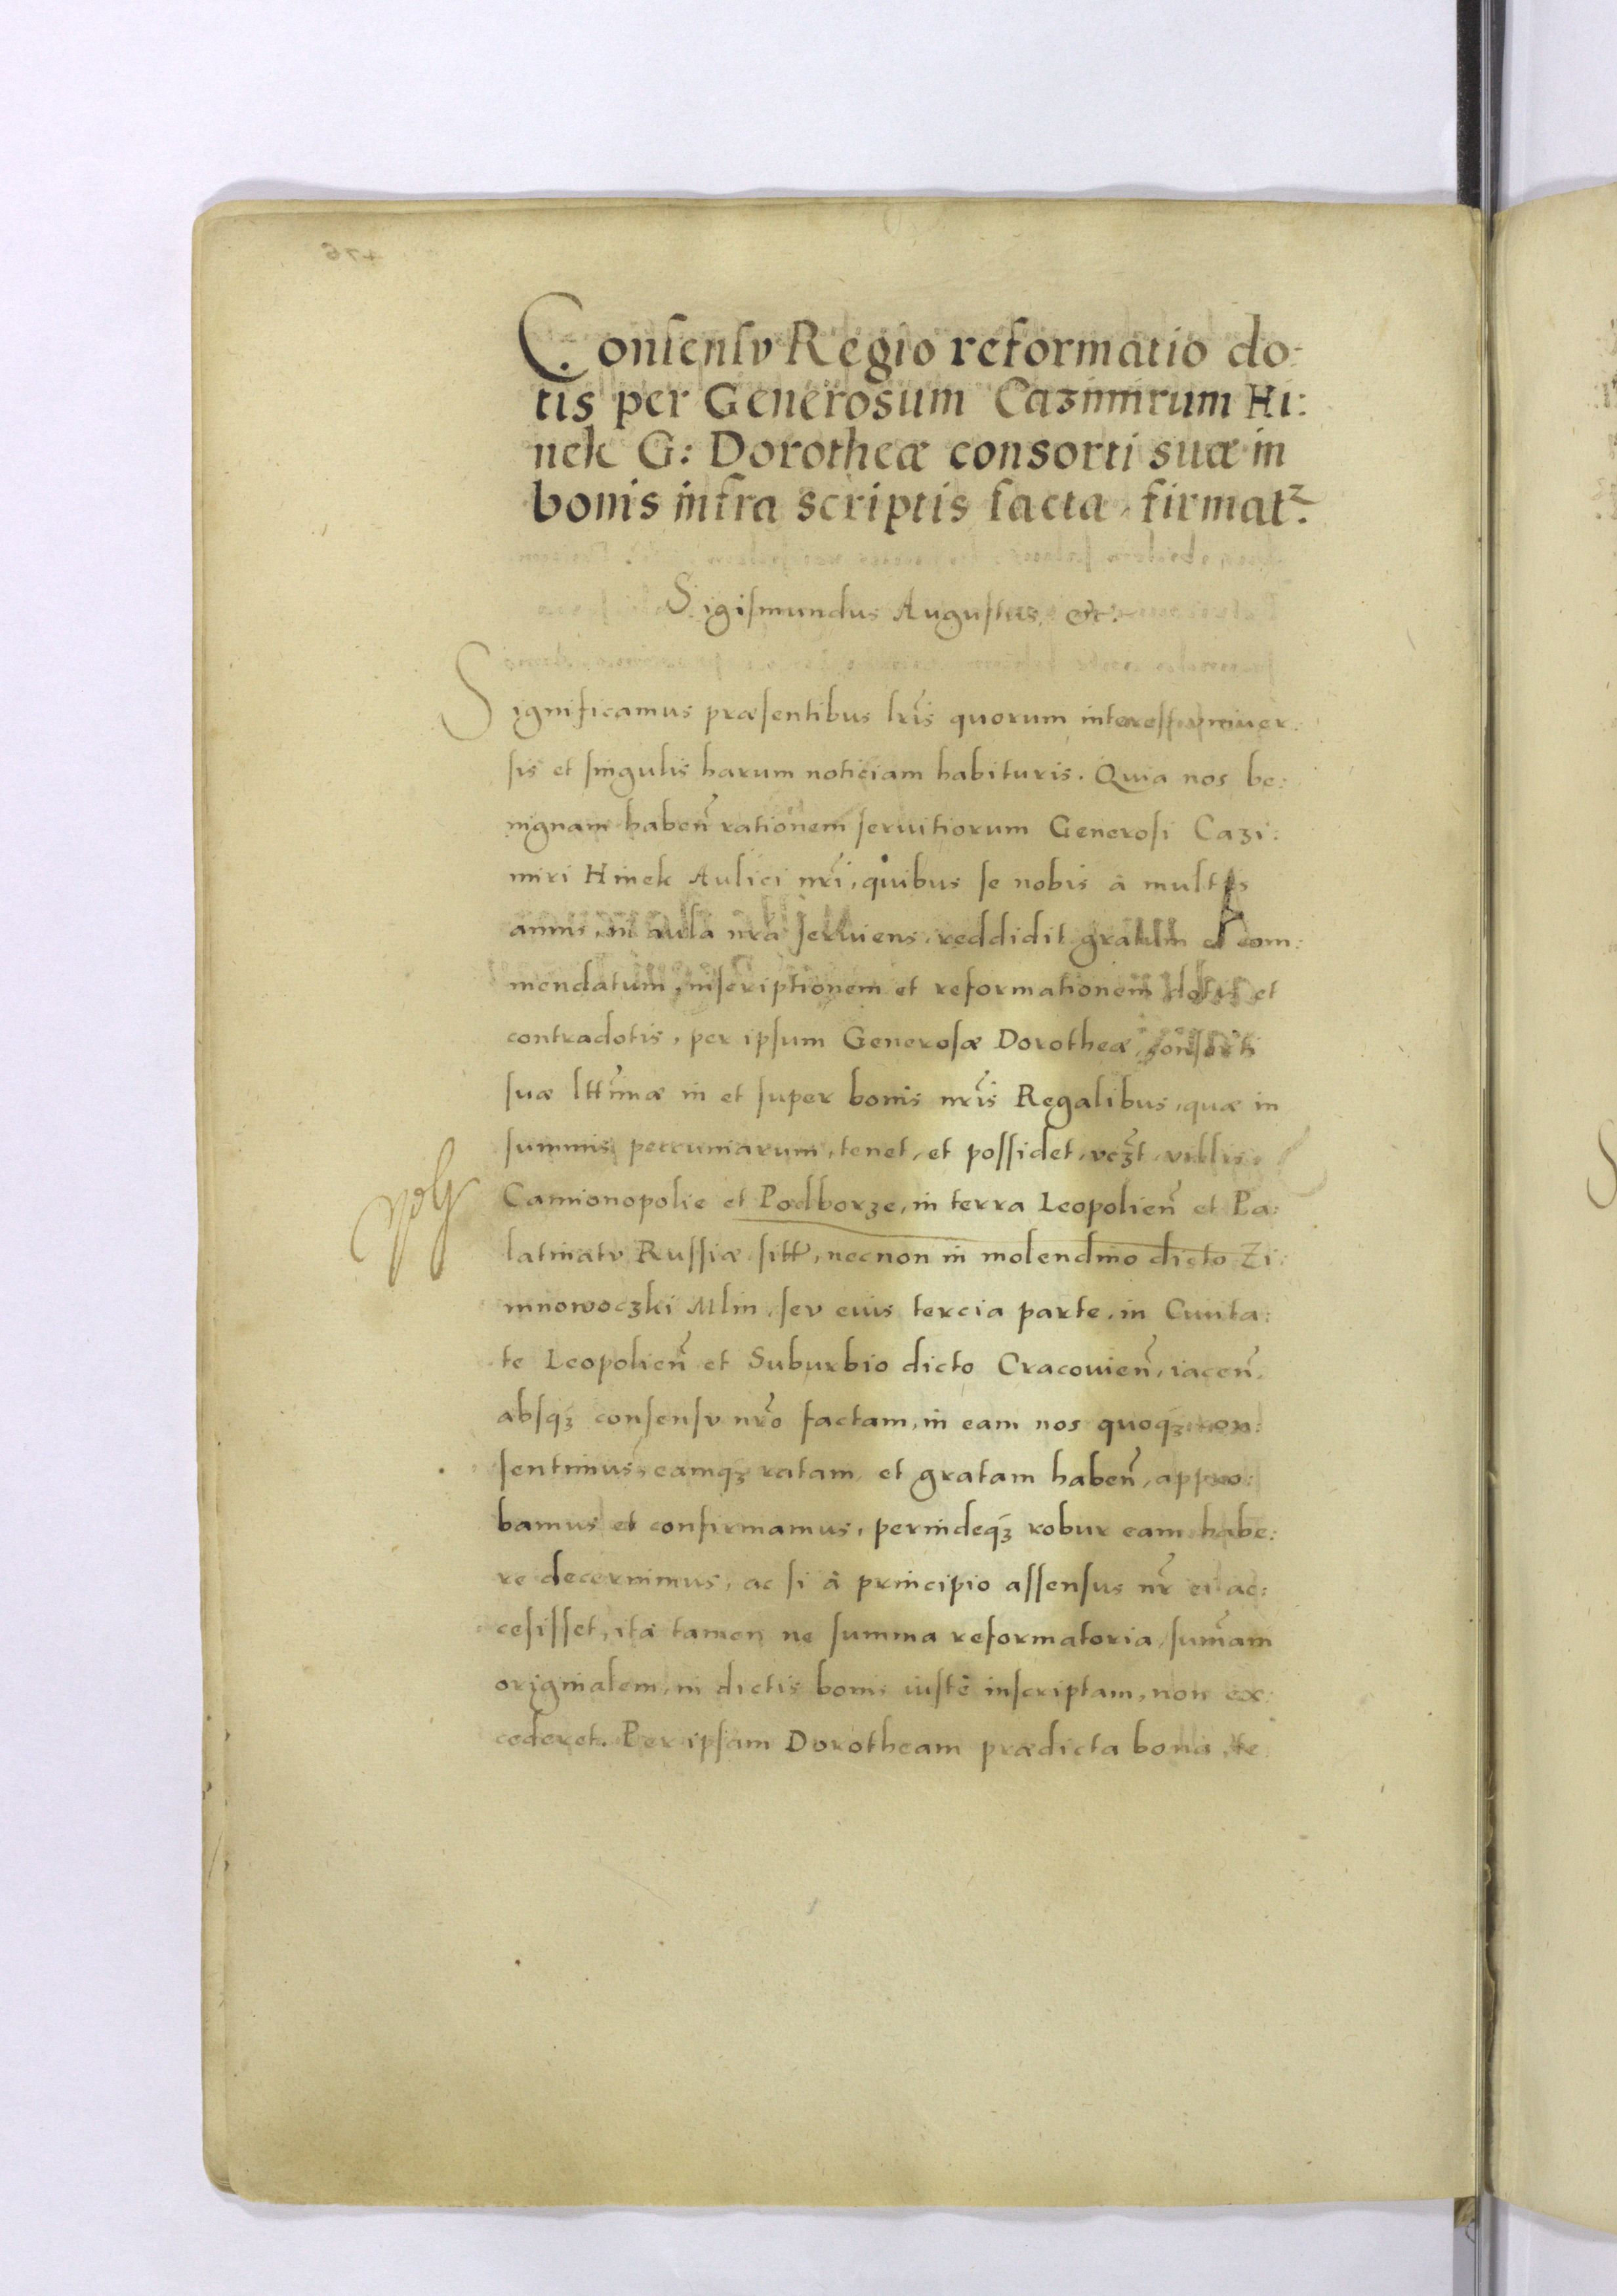 Consensu Regio reformatio do:
tis per Generosum Cazimirum Hi:
nek G: Dorotheæ consorti suæ in
bonis infra scriptis facta, firmatꝛ.
Sigismundus Augustus, etc.
Significamus præsentibus lr̃is quorum interest vniuer:
sis et singulis harum noticiam habituris. Quia nos be:
nignam haben̄ rationem seruitiorum Generosi Cazi:
miri Hinek Aulici nr̃i, quibus se nobis à multis
annis, in aula nr̃a seruiens, reddidit gratum et com:
mendatum, inscriptionem et reformationem dotis et
contradotis, per ipsum Generosæ Dorotheæ, consorti
suæ ltt̃imæ in et super bonis nr̃is Regalibus, quæ in
summis peccuniarum, tenet, et possidet, vcꝫt, villis
Camionopolie et Podborze, in terra Leopolien̄ et Pa:
latinatv Russiæ sitt̃, necnon in molendino dicto Zi:
mnowoczki Mlin, sev eius tercia parte, in Ciuita:
te Leopolien̄ et Suburbio dicto Cracouien̄, iacen̄,
absqꝫ consensv nr̃o factam, in eam nos quoqꝫ con:
sentimus, eamqꝫ ratam, et gratam haben̄, appro:
bamus et confirmamus, perindeqꝫ robur eam habe:
re decernimus, ac si à principio assensus nr̃ ei ac:
cesisset, ita tamen ne summa reformatoria, sum̃am
originalem, in dictis bonis iustè inscriptam, non ex:
cederet. Per ipsam Dorotheam prædicta bona, te